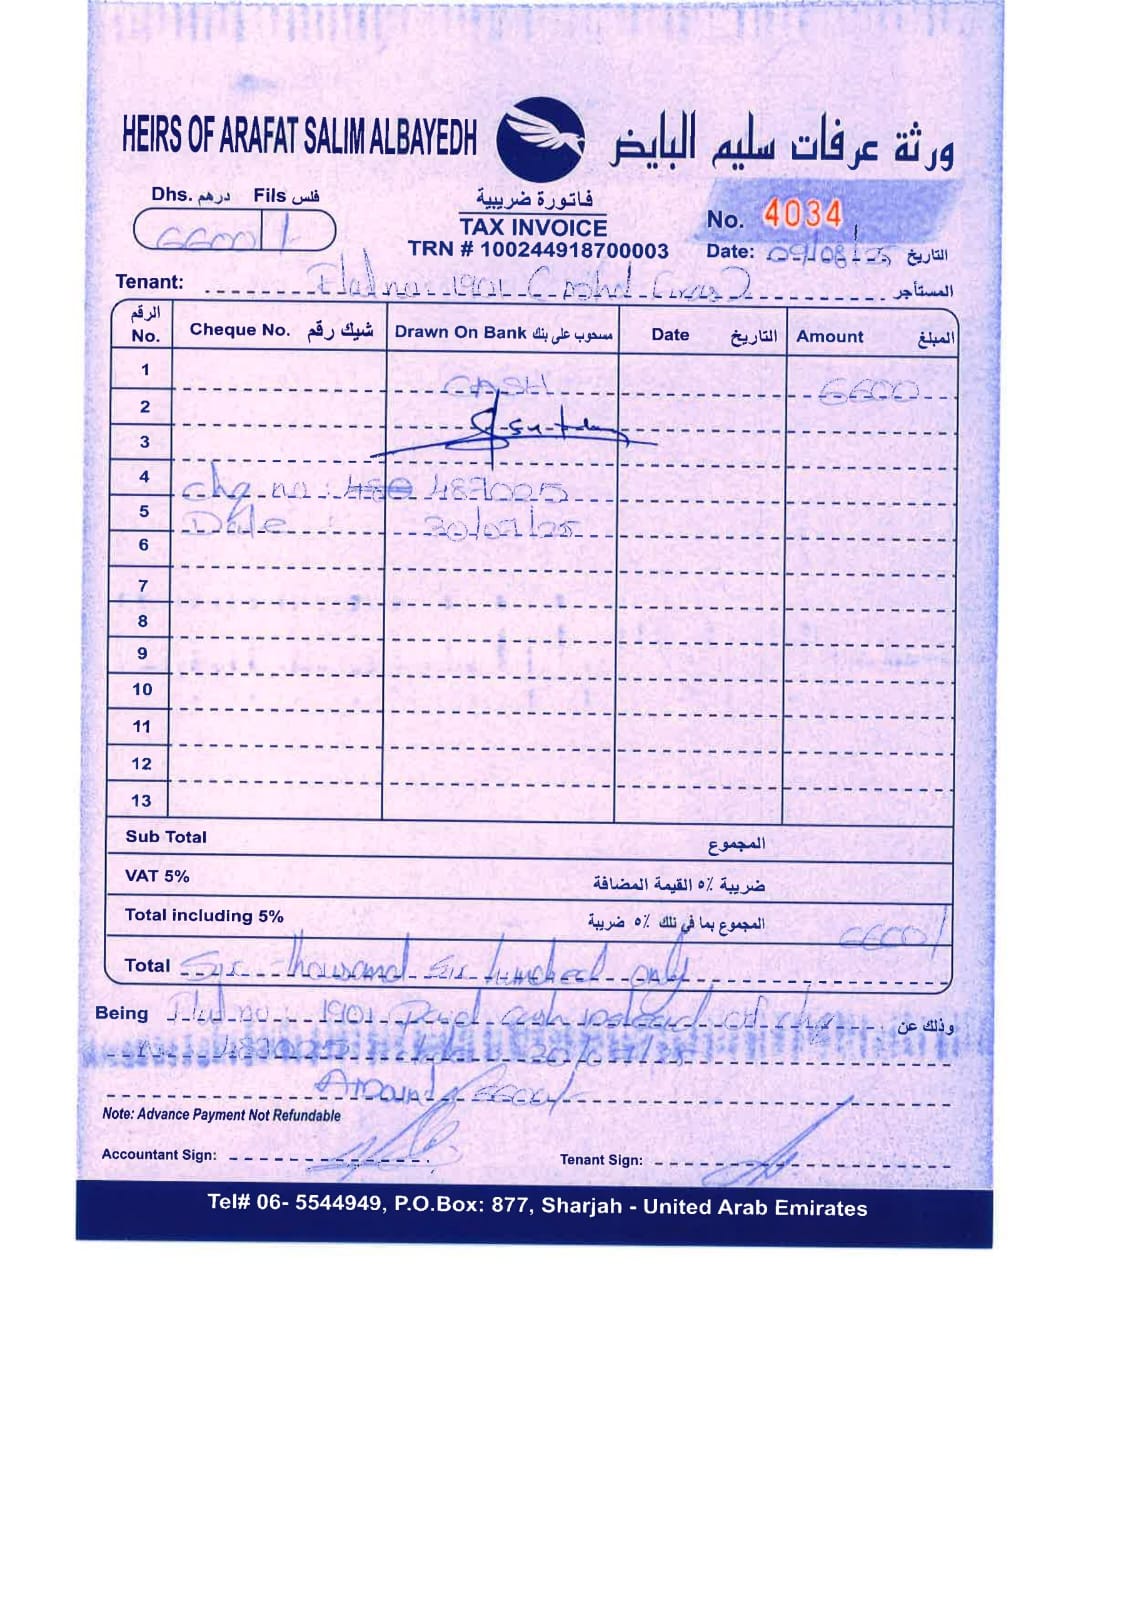 HEIRS OF ARAFAT SALIM ALBAYEDH
ورثة عرفات سليم البايض
Dhs. درهم Fils فلس
6600/-
فاتورة ضريبية
TAX INVOICE
TRN # 100244918700003
No. 4034
Date: 09/08/25 التاريخ
Tenant: Flat no 1901 المستأجر
الرقم No. Cheque No. شيك رقم Drawn On Bank مسحوب على بنك Date التاريخ Amount المبلغ
1 CASH 6600
2
3
4 chq no : 487025
5 Date : 30/07/25
6
7
8
9
10
11
12
13
Sub Total المجموع
VAT 5% ضريبة ٥٪ القيمة المضافة
Total including 5% المجموع بما في ذلك ٥٪ ضريبة 6600/
Total Six thousand six hundred only
Being Flat no : 1901 Paid cash instead of chq وذلك عن
No 30/07/25
Amount 6600/-
Note: Advance Payment Not Refundable
Accountant Sign:
Tenant Sign:
Tel# 06- 5544949, P.O.Box: 877, Sharjah - United Arab Emirates